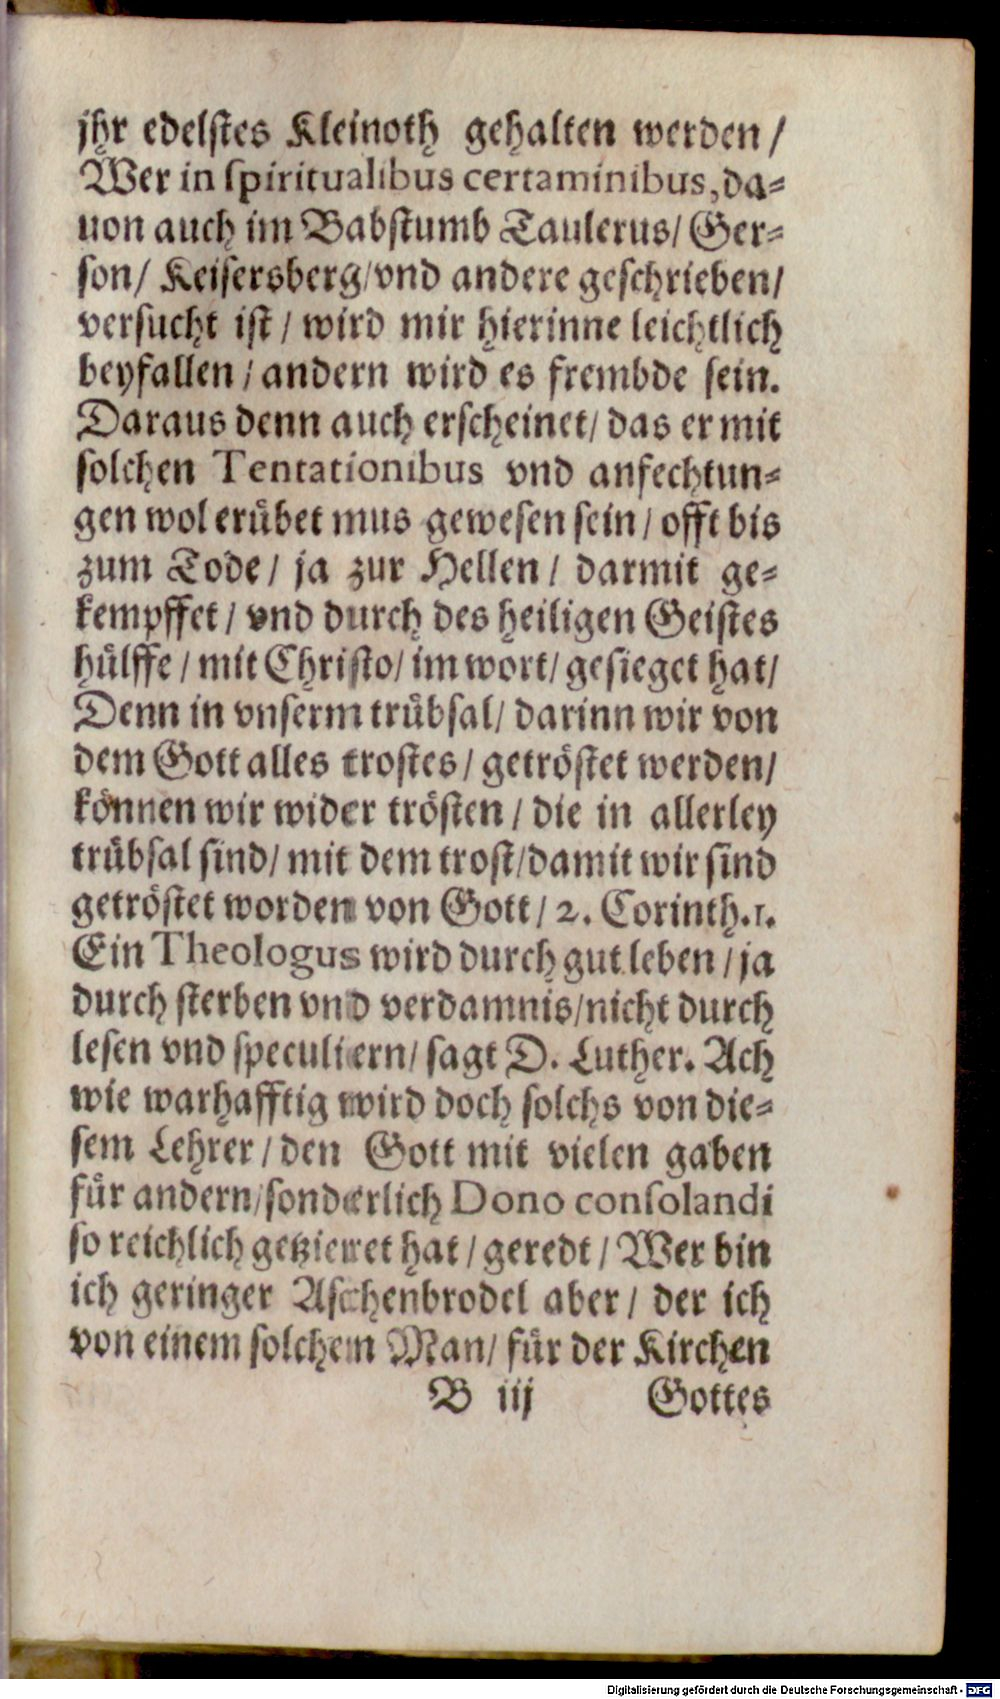 jhr edelstes Kleinoth gehalten werden /
Wer in spiritualibus certaminibus, da-
uon auch im Babstumb Taulerus / Ger-
son / Keisersberg / vnd andere geschrieben /
versucht ist / wird mir hierinne leichtlich
beyfallen / andern wird es frembde sein.
Daraus denn auch erscheinet / das er mit
solchen Tentationibus vnd anfechtun-
gen wol erübet mus gewesen sein / offt bis
zum Tode / ja zur Hellen / darmit ge-
kempffet / vnd durch des heiligen Geistes
hülffe / mit Christo / im wort / gesieget hat /
Denn in vnserm trübsal / darinn wir von
dem Gott alles trostes / getröstet werden /
können wir wider trösten / die in allerley
trübsal sind / mit dem trost / damit wir sind
getröstet worden von Gott / 2. Corinth. 1.
Ein Theologus wird durch gut leben / ja
durch sterben vnd verdamnis / nicht durch
lesen vnd speculiern / sagt D. Luther. Ach
wie warhafftig wird doch solchs von die-
sem Lehrer / den Gott mit vielen gaben
für andern / sonderlich Dono consolandi
so reichlich getzieret hat / geredt / Wer bin
ich geringer Aschenbrodel aber / der ich
von einem solchem Man / für der Kirchen
B iij Gottes
Digitalisierung gefördert durch die Deutsche Forschungsgemeinschaft - DFG